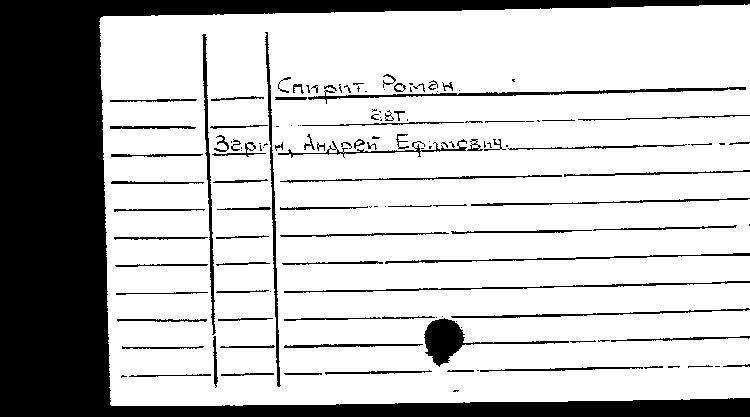 Спирит. Роман.
авт.
Зарин, Андрей Ефимович.